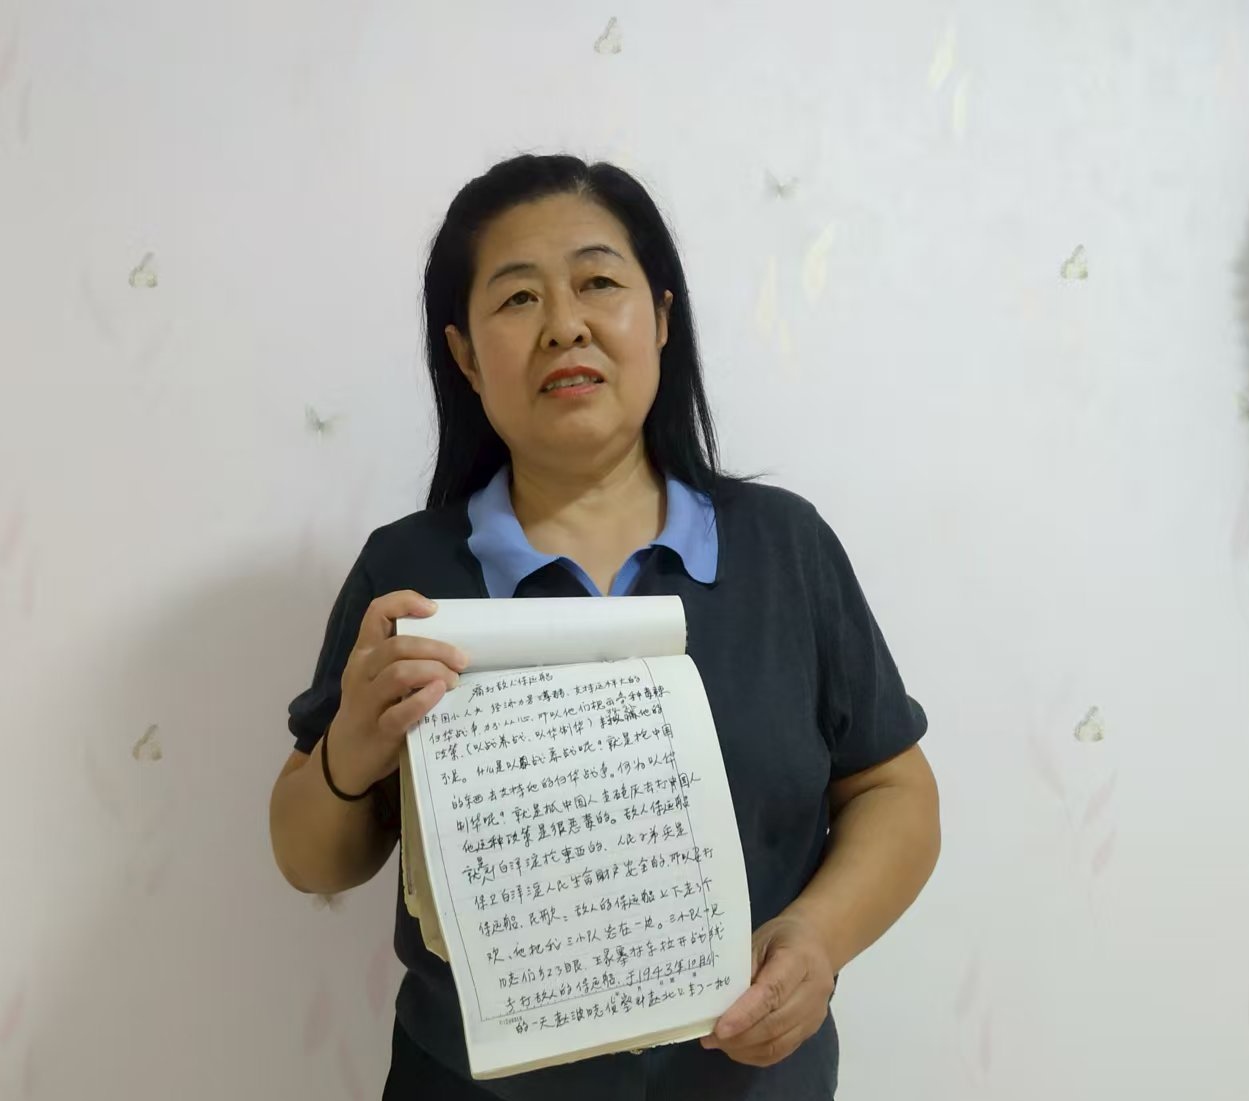 痛打敌人保运船
日本国小人少 经济力量薄弱、支持这样大的
侵华战争力不从心、所以他们提出各种毒辣
政策、(以战养战、以华制华)
不是。什么是以战养战呢?就是抢中国
的东西去支持他的侵华战争。何为以华
制华呢?就是抓中国人当炮灰去打中国人
他这种政策是很恶毒的。敌人保运船
就是到白洋淀抢东西的、人民子弟兵是
保卫白洋淀人民生命财产安全的、所以要打
保运船、民歌:敌人的保运船上下走了个
欢、他把我三小队 在一边。三小队一见
急红了眼、王家寨村东拉开战线
去打敌人的保运船、于1943年10月份
的一天赵波晓侦察到赵北口来了一批